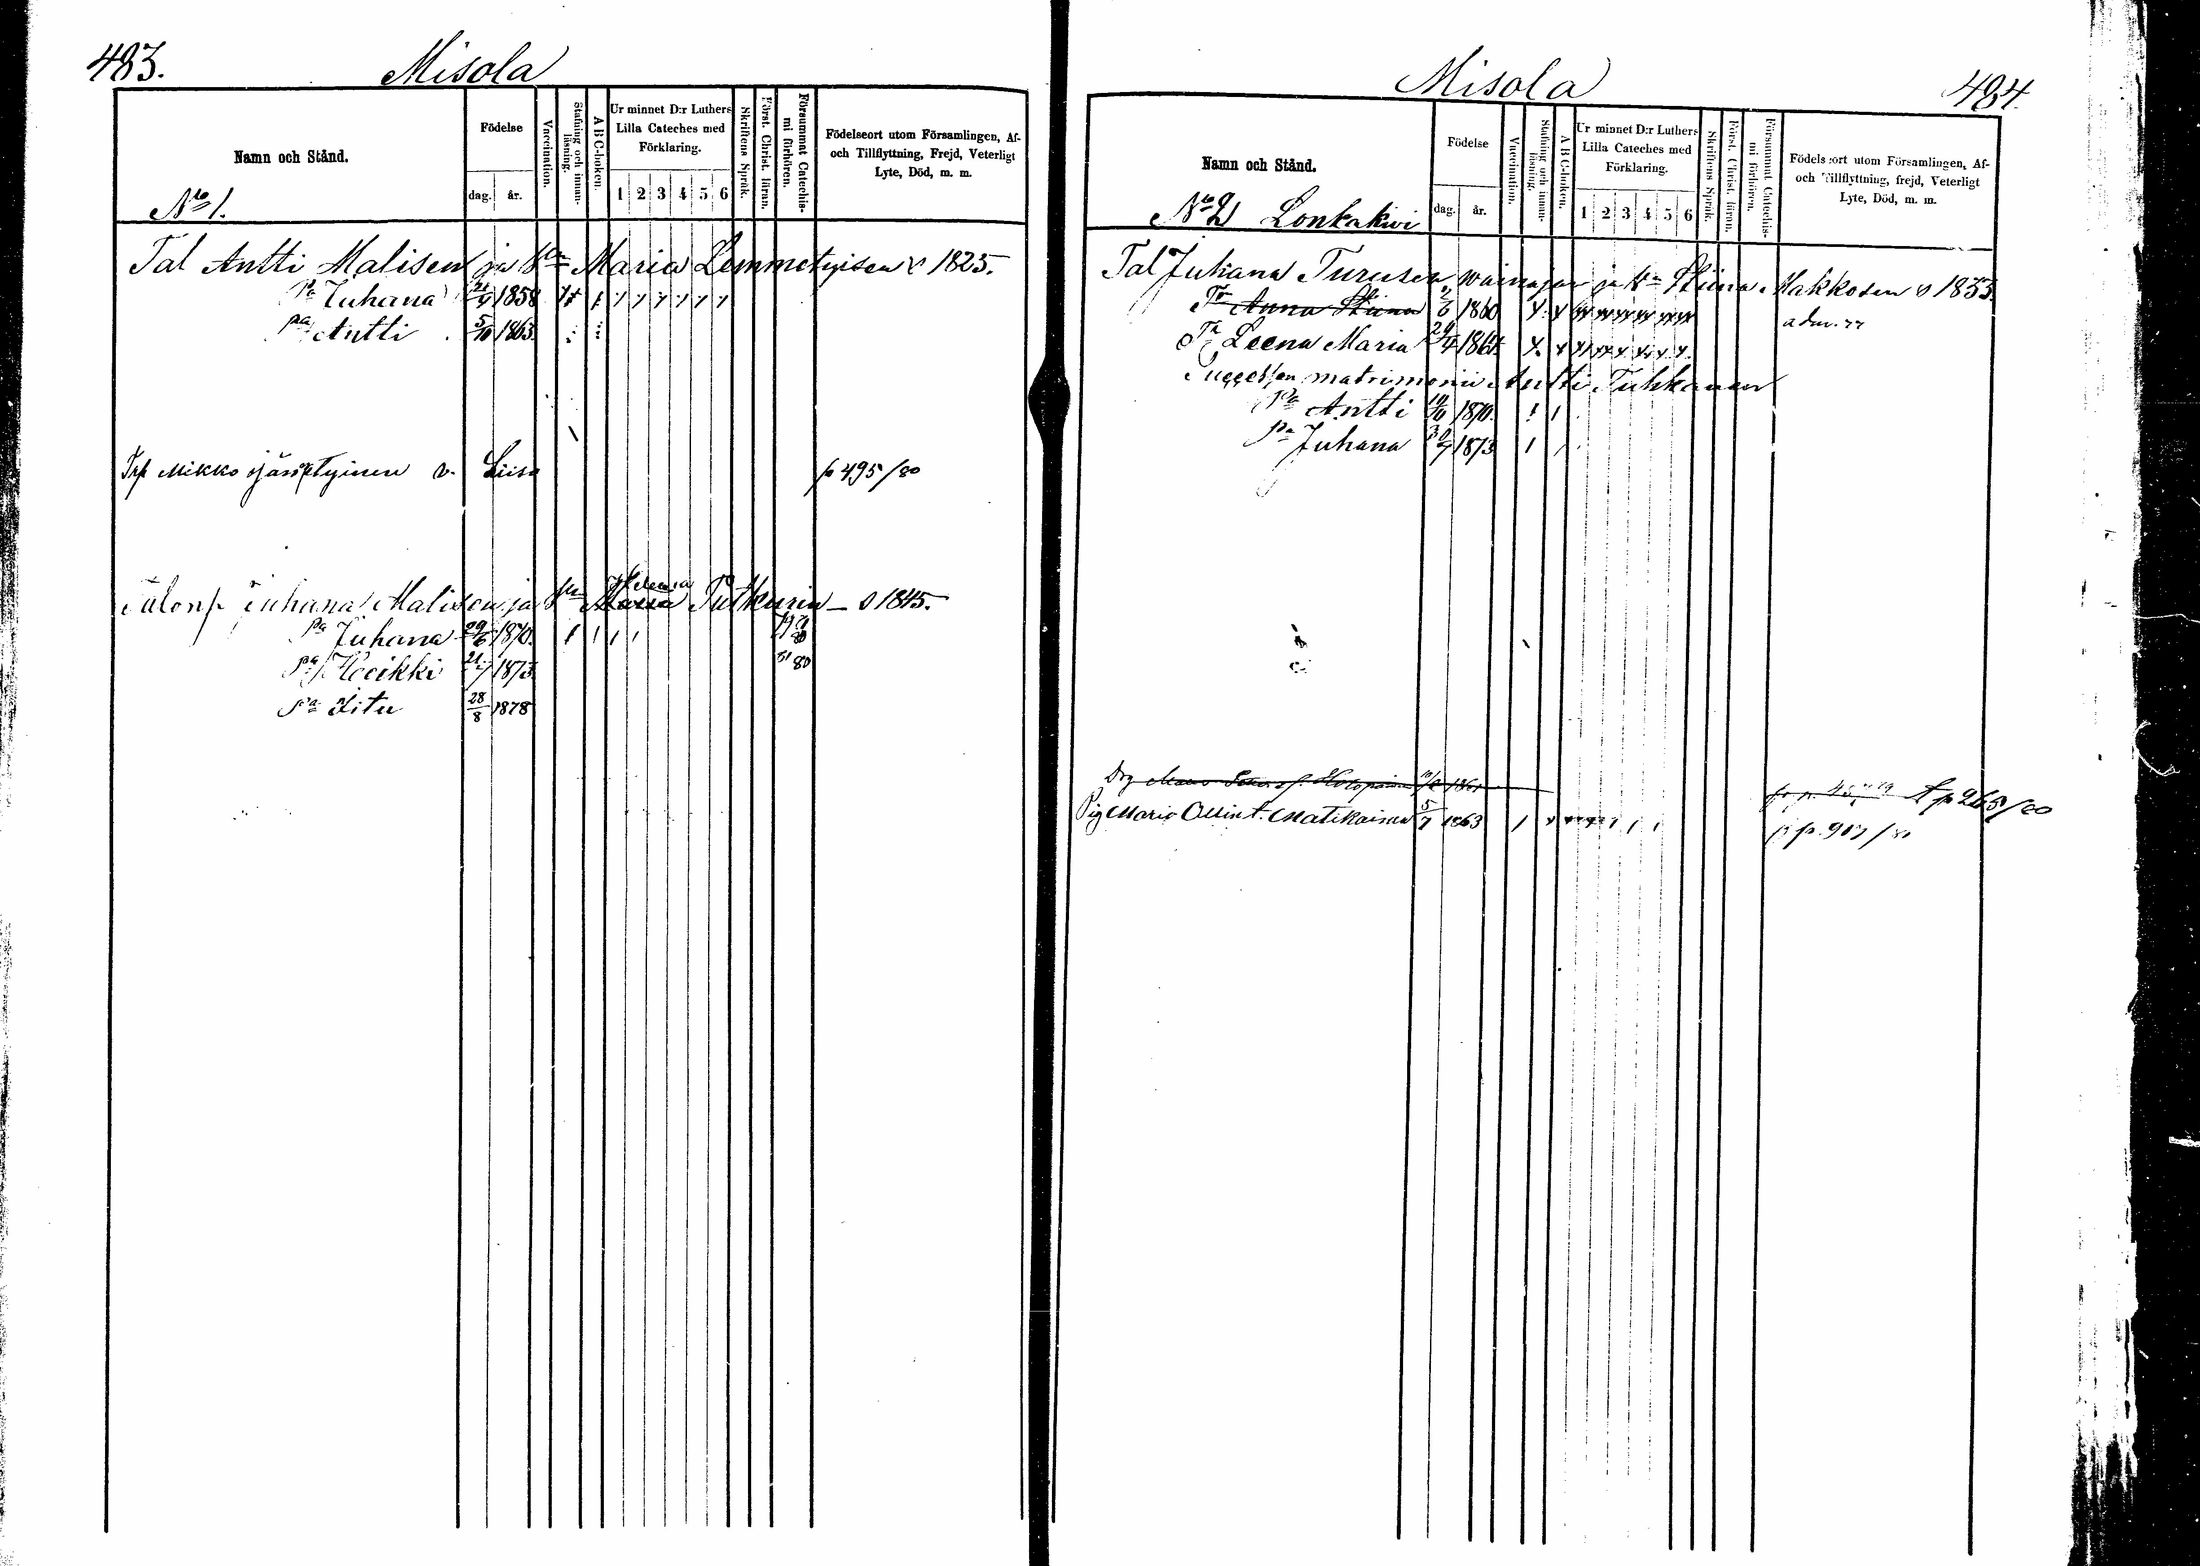 483.
Misola
Namn och Stånd.
Födelse
dag. år.
Vaccination.
Stafning och innan-läsning.
A B C-boken.
Ur minnet D:r Luthers
Lilla Cateches med
Förklaring.
1 2 3 4 5 6
Skriftens Språk.
Först. Christ. läran.
Försummat Catechis-mi förhören.
Födelseort utom Församlingen, Af-
och Tillflyttning, Frejd, Veterligt
Lyte, Död, m. m.
No 1.
Tal Antti Malisen ja Maria Lemmetyisen 1825.
Pa Juhana 1858
pa Antti 5/10 1863
Mikko Liisa p 495/80
Talonp Juhana Malisen ja Helena Putkurin 1845.
Pa Juhana 29/6 1870
pa Heikki 1873 80
pa Iitu 28/8 1878
Misola
484.
Namn och Stånd.
Födelse
dag. år.
Vaccination.
Stafning och innan-läsning.
A B C-boken.
Ur minnet D:r Luthers
Lilla Cateches med
Förklaring.
1 2 3 4 5 6
Skriftens Språk.
Först. Christ. läran.
Försummat Catechis-mi förhören.
Födelseort utom Församlingen, Af-
och Tillflyttning, frejd, Veterligt
Lyte, Död, m. m.
No 2 Lonkakivi
Tal Juhana Turusen, wainajan ja Stiina Makkosen 1833
Tr Anna Stiina 1860 adm. 77
Tr Leena Maria 1864
matrimonii Antti Tuhkanen
Pa Antti 1870
Pa Juhana 1873
Drg 1861 p 265/80
Pig Maria Ollin t. Matikainen 5/7 1863 p. 907/80